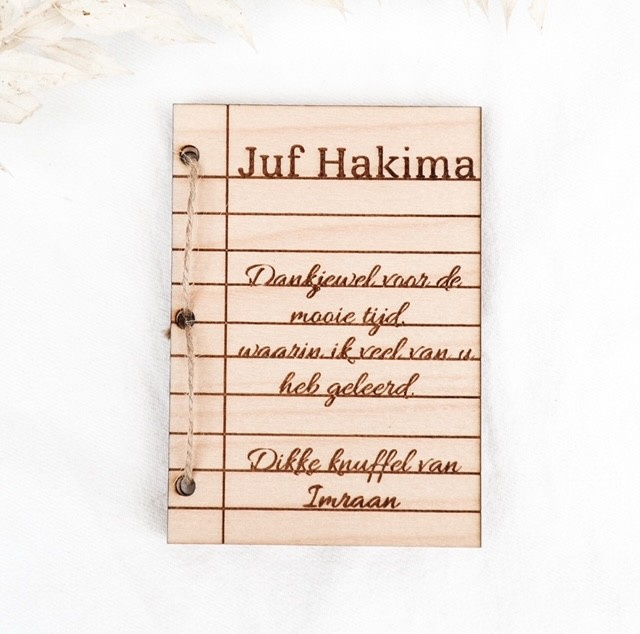 Juf Hakima
Dankjewel voor de
mooie tijd,
waarin ik veel van u
heb geleerd.
Dikke knuffel van
Imraan